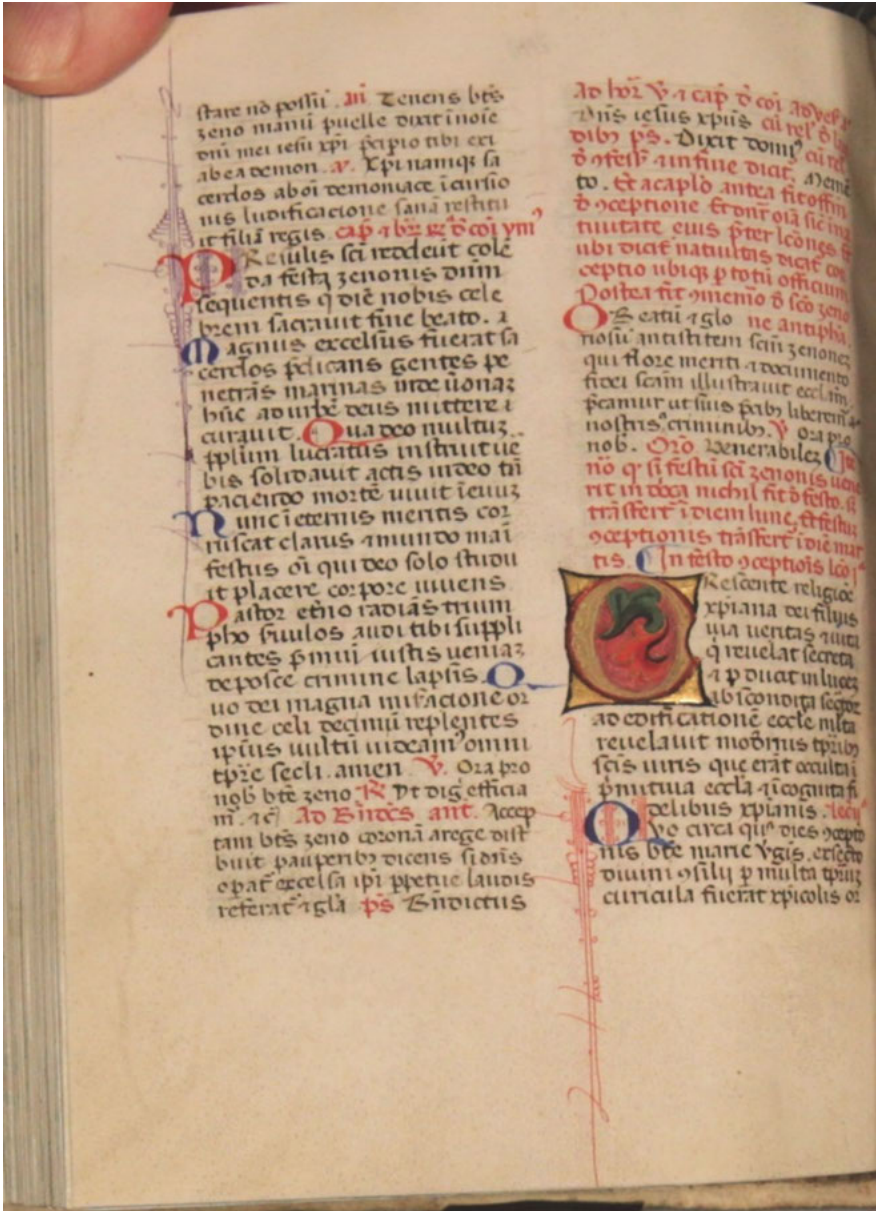 stare nō possū. añ Tenens bt̄s
zeno manū puelle dixit ī noīe
dn̄i mei iesu xp̄i p̄cipio tibi exi
ab ea demon. ā. Xp̄i namq; sa
cerdos ab oī demoniace īcursio
nis ludificacione sanā restitu
it filiā regis. cap̄ ⁊ br̄ R̄ d̄ coī ymꝰ
PResulis sc̄i redeūt colē
da festa zenonis dum
sequentis q̄ diē nobis cele
brem sacravit fine beato. a
Magnus excelsus fuerat sa
cerdos p̄dicans gentes pe
netrās marinas inde
huc ad urbē deus mittere
curavit. Qua deo multuꝫ
pp̄lum lucratus instruit ue
bis solidavit actis in deo
paciendo mortē vivit ī evuꝫ
Nunc ī eternis meritis cor
ruscat clarus ⁊ mundo maī
festus oī qui deo solo studu
it placere corpore vivens
Pastor et̄no radiās trium
pho s̄vulos audi tibi suppli
cantes p̄mūi iustis veniaꝫ
deposce crimine lapsis. Q
uo dei magna mis̄acione or
dine celi decimū replentes
ip̄ius uultū videamꝰ omni
tp̄re secli. amen. V̄. Ora pro
nob bt̄e zeno R̄ Vt diḡ efficia
m̄. ⁊c̄ Ad Bn̄des. ant. Accep
tam bt̄s zeno coronā a rege dist
buit pauperibꝫ dicens si dn̄s
opat̄ excelsa ip̄i p̄petue laudis
referat̄ ⁊ gl̄a p̄s Bn̄dictus
Ad hor̄ V̄ ⁊ cap̄ d̄ coī Ad vesp̄
Dn̄s iesus xp̄ius cū rel̄ d̄ lau
dibꝫ p̄s. Dixit domīꝰ cū rel̄
d̄ ꝯfess̄ ⁊ in fine dicit̄. Memē
to. Et a cap̄lo antea fit offm̄
d̄ ꝯceptione. Et dn̄r oīa sic in na
tiuitate eius p̄ter lcōnes Et
ubi dicit̄ natiuitas dicat̄ con
ceptio ubiq; p̄ totū officium
Postea fit ꝯmemō d̄ sc̄o zeno
ne antipha.
OBeatū ⁊ glo
riosū antistitem sc̄m zenoneꝫ
qui flore meriti ⁊ documento
fidei sc̄am illustravit eccl̄am,
p̄camur ut suis p̄cibꝫ liberemꝰ a
nostris criminibꝫ. V̄ Ora pro
nob. Orō Venerabileꝫ It̄
nō q̄ si festū sc̄i zenonis vene
rit in dōca nichil fit d̄ festo. sꝫ
trāsfert̄ ī diem lune. Et festuꝫ
ꝯceptionis trāsfert̄ ī diē mar
tis. In festo ꝯceptiōis lcō jͣ
CRescente religiōe
xp̄iana dei filiis
via veritas ⁊ vita
q̄ revelat secreta
⁊ p̄ducit in luceꝫ
abscondita
ad edificationē eccl̄e m̄lta
revelavit modernis tp̄ribꝫ
sc̄is viris que erāt occulta ī
p̄mitiva eccl̄a ⁊ īcognita fi
delibus xp̄ianis. lectꝰ
QVo circa quī dies ꝯceptō
nis bt̄e marie v̄gis. ex secto
divini ꝯsilij p̄ multa tp̄ruꝫ
curicula fuerat xp̄icolis oc